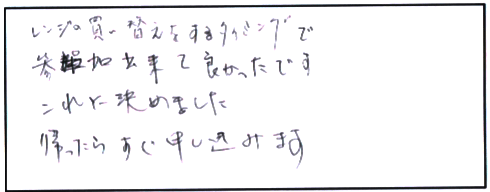 レンジの買い替えをするタイミングで
参加出来て良かったです
これに決めました
帰ったらすぐ申し込みます